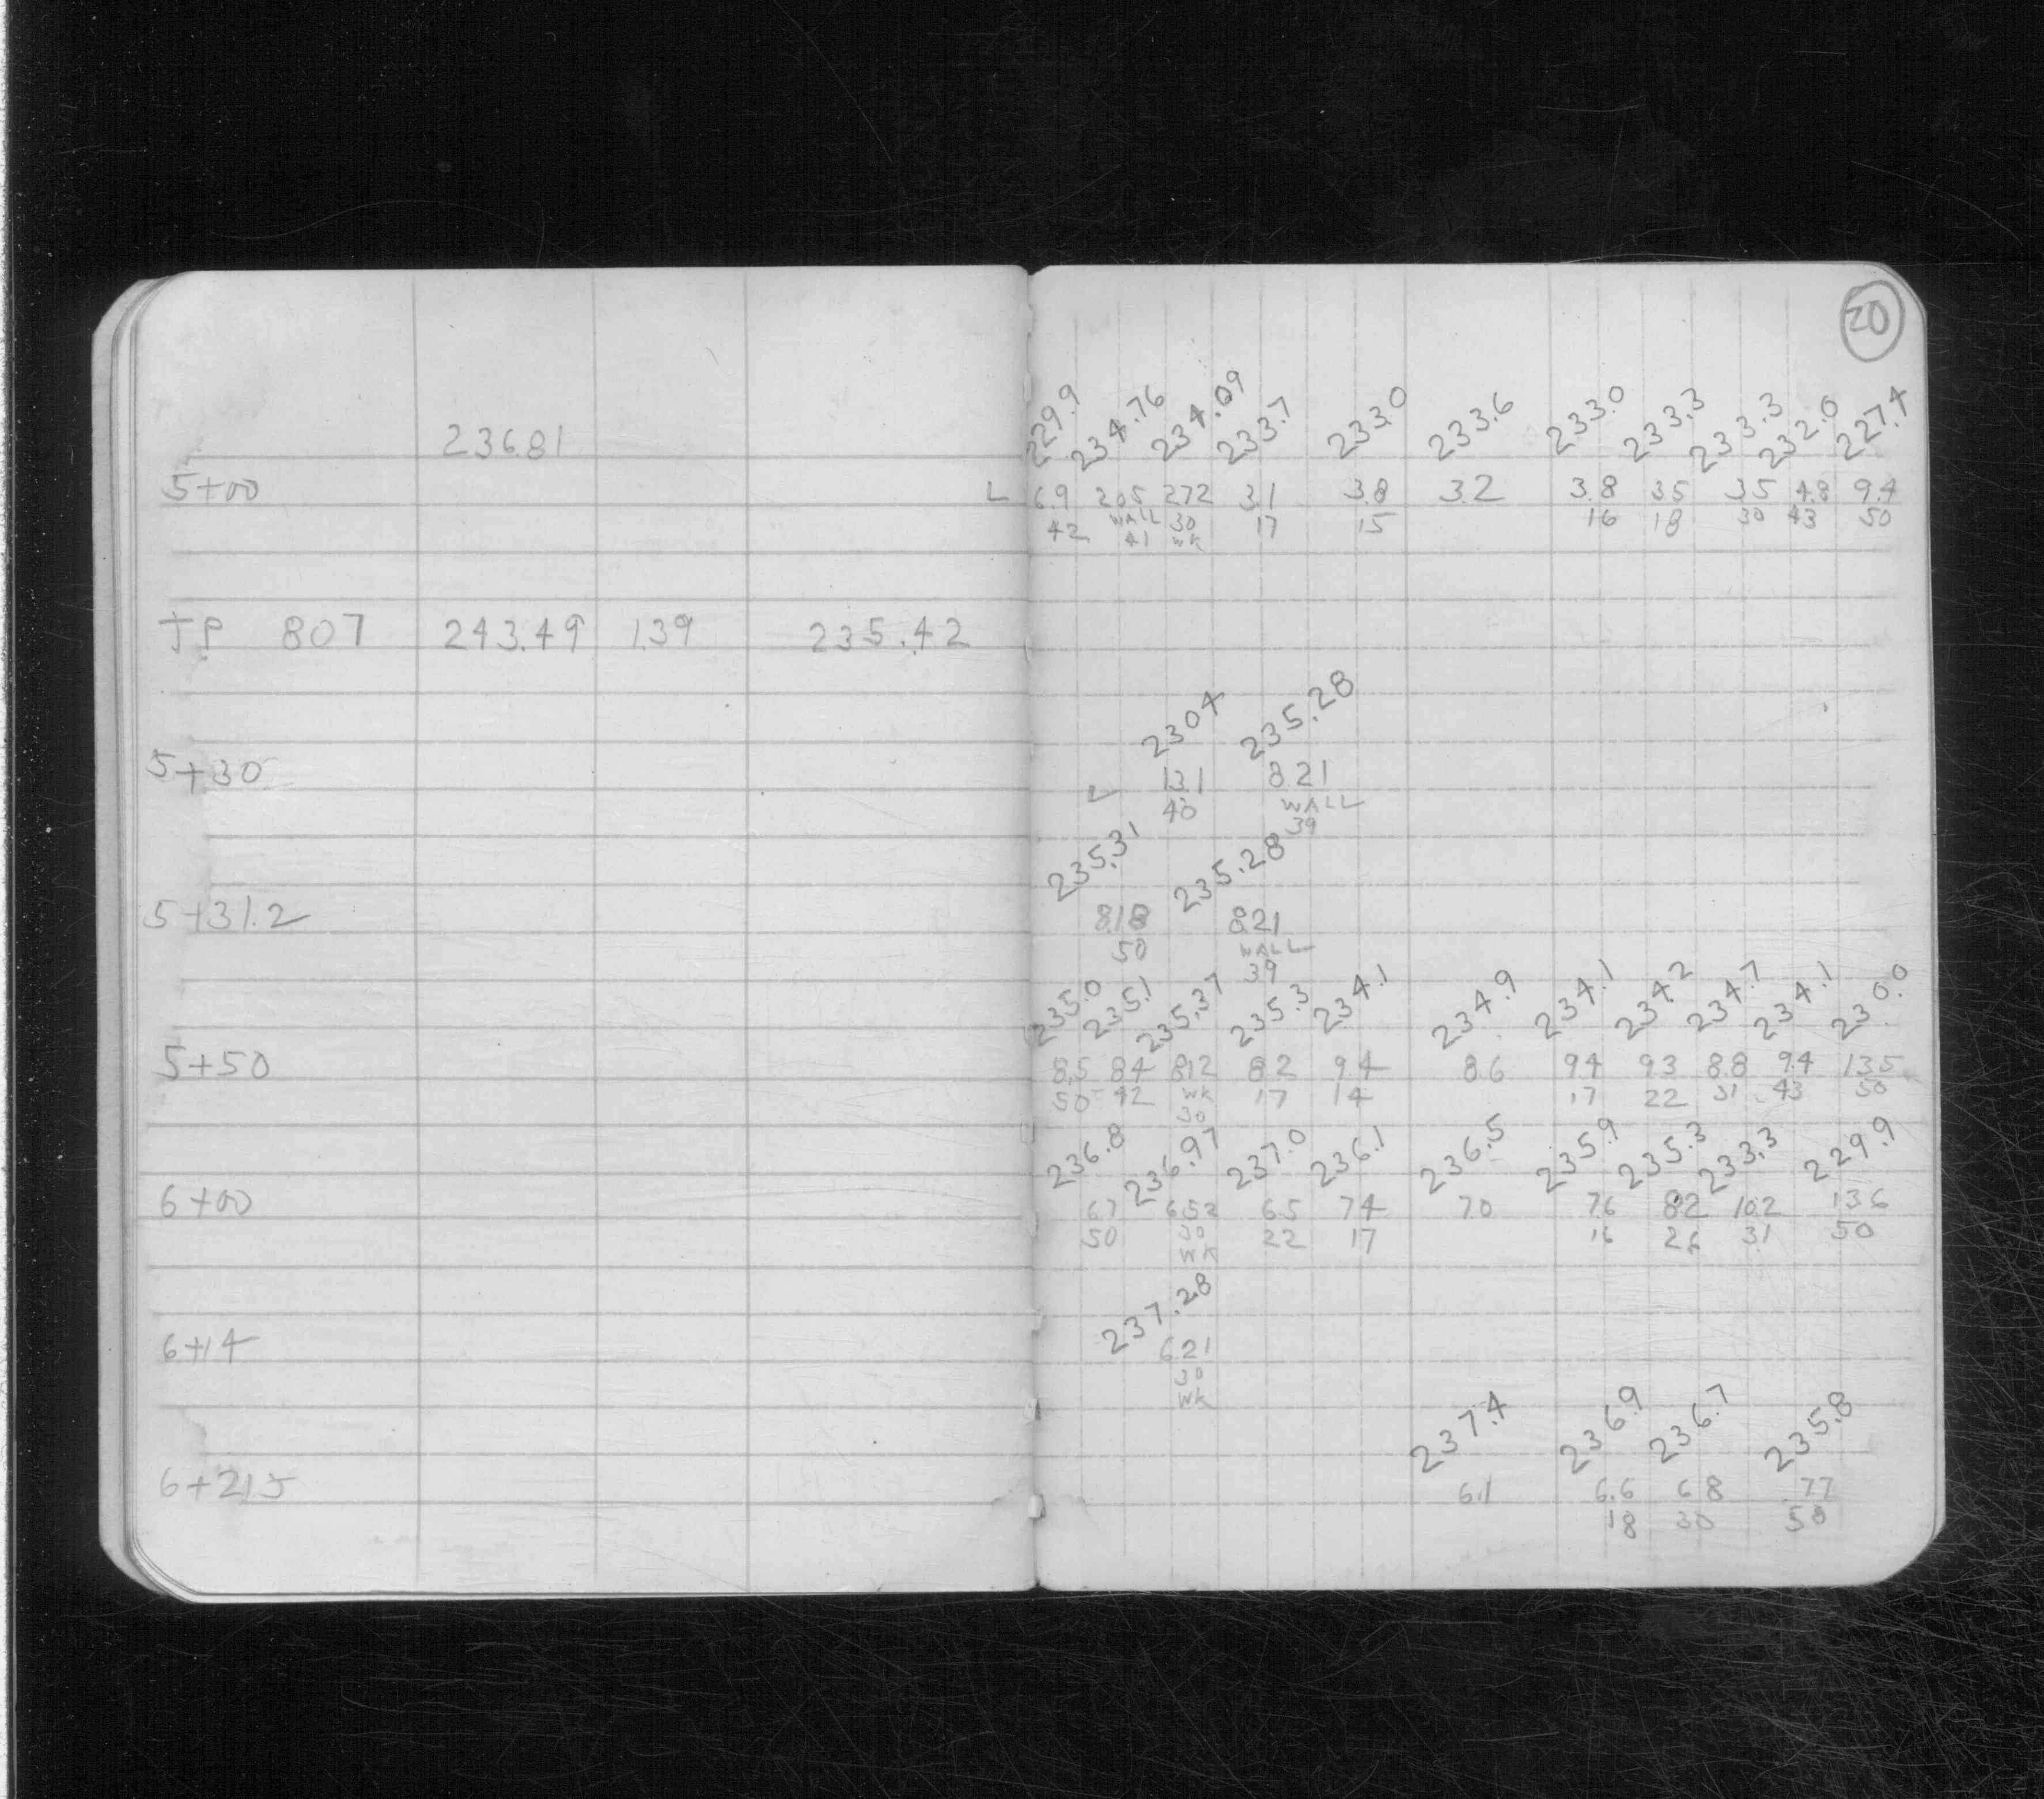 20
229.9 234.76 234.09 233.7 233.0 233.6 233.0 233.3 233.3 232.0 227.4
236.81
5+00 L 6.9 2.05 2.72 3.1 3.8 3.2 3.8 3.5 3.5 4.8 9.4
42 WALL 30 17 15 16 18 30 43 50
41 WK
TP 807 243.49 1.39 235.42
230.4 235.28
5+30 L 13.1 8.21
40 WALL
39
235.31 235.28
5+31.2 8.18 8.21
50 WALL
39
235.0 235.1 235.37 235.3 234.1 234.9 234.1 234.2 234.7 234.1 230.0
5+50 8.5 8.4 8.12 8.2 9.4 8.6 9.4 9.3 8.8 9.4 13.5
50 42 WK 17 14 17 22 31 43 50
30
236.8 236.97 237.0 236.1 236.5 235.9 235.3 233.3 229.9
6+00 6.7 6.52 6.5 7.4 7.0 7.6 8.2 10.2 13.6
50 30 22 17 16 26 31 50
WK
237.28
6+14 6.21
30
WK
237.4 236.9 236.7 235.8
6+21.5 6.1 6.6 6.8 7.7
18 30 50